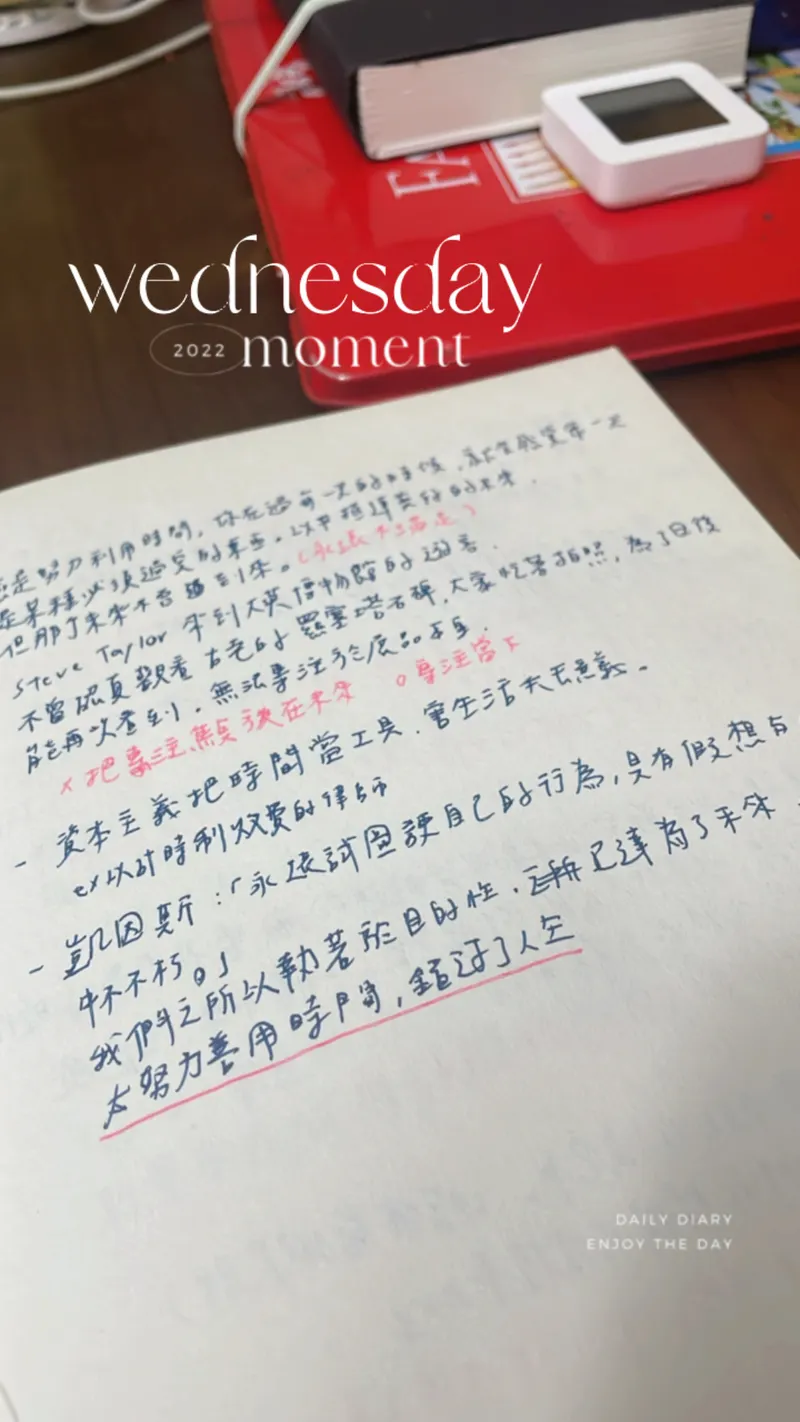 EA
wednesday
2022 moment
是努力利用時間,你在過每一天的時候,
是某種必須通交的東西,以中抵達美好的未來.
但那个未來不會到來。(永遠不滿足)
Steve Taylor 來到大英博物館的迴音.
不曾認真觀看古老的羅塞塔石碑,大家忙著拍照,為了日後
能再次看到,無法專注於展品本身.
x 把專注焦點放在未來 o 專注當下
- 資本主義把時間當工具,害生活失去意義。
ex 以計時制收費的律師
- 凱因斯:「永遠試圖讓自己的行為,具有假想的
不朽。」
我們之所以執著於目的性,是為了未來
太努力善用時間,錯過了人生
DAILY DIARY
ENJOY THE DAY